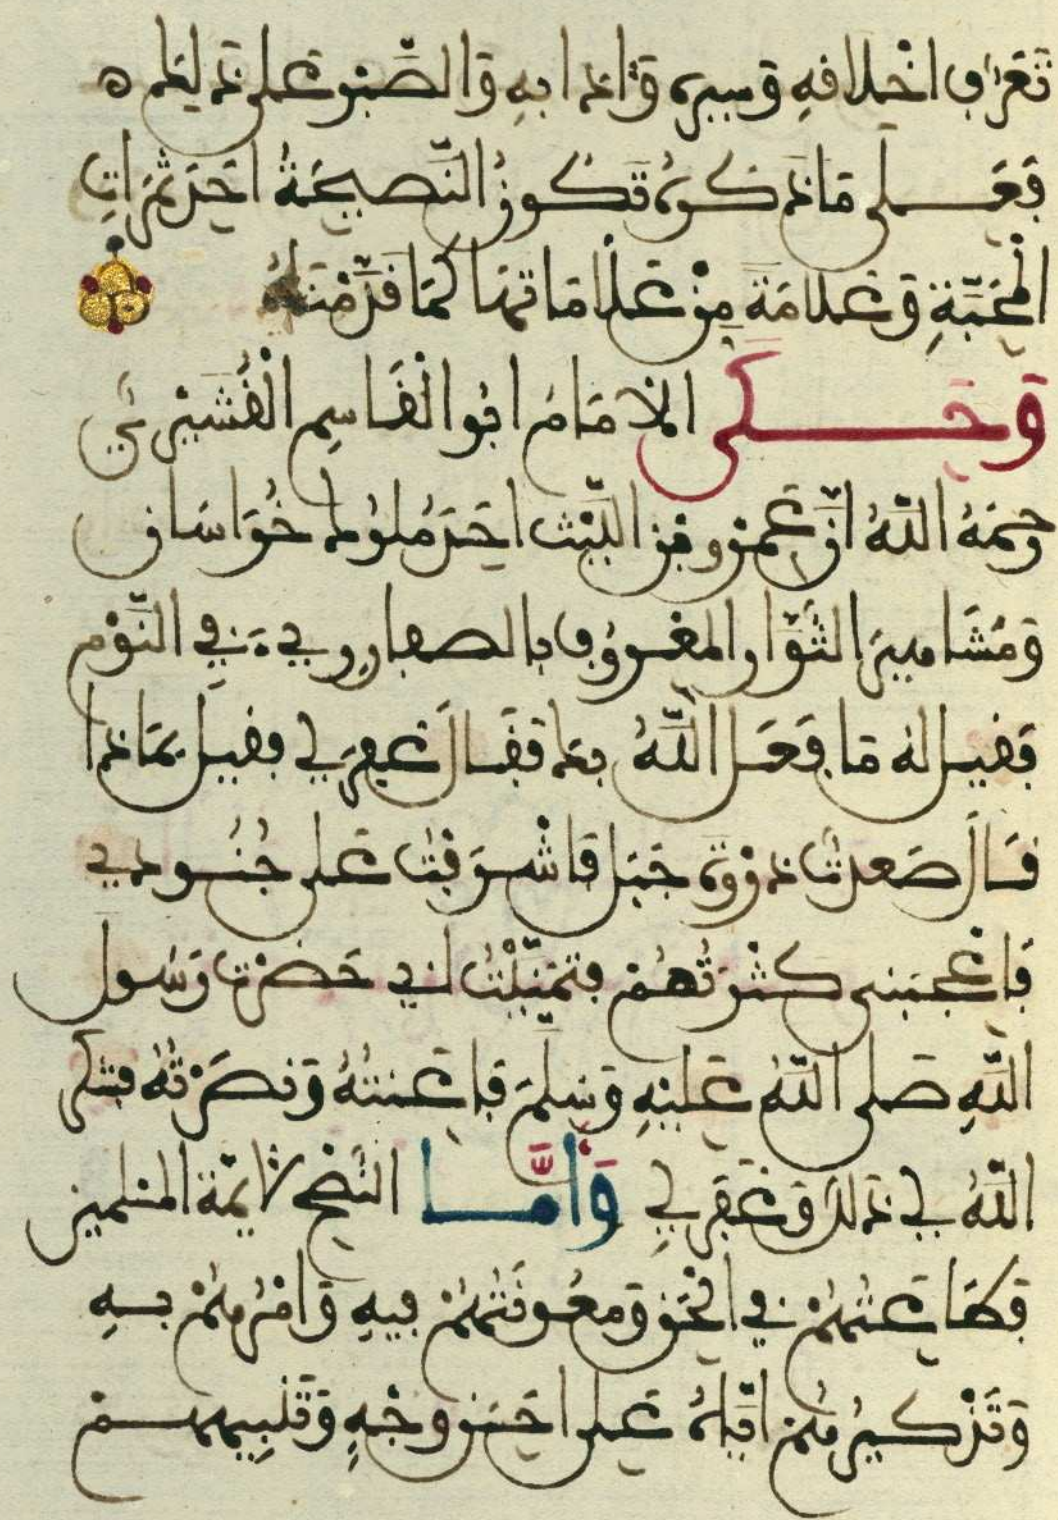 تَعَرُّفِ اخْلافِهِ وَسِيَرِهِ وَءَادابِهِ وَالصَّبْرِ عَلَى ذلِكَ
فَعَلَى مَا ذَكَرْنَاهُ تَكُونُ النَّصِيحَةُ احَدَ ثَمَرَاتِ
الْمَحَبَّةِ وَعَلامَةً مِنْ عَلامَاتِهَا كَمَا قَدَّمْنَاهُ
وَحَكَى الامَامُ ابُو الْقَاسِمِ الْقُشَيْرِيُّ
رَحِمَهُ اللَّهُ انَّ عَمْرَو بْنَ اللَّيْثِ احَدَ مُلُوكِ خُرَاسَانَ
وَمَشَاهِيرَ الثُّوَّارِ المعْرُوفِ بالصفار رِيءَ فِي النَّوْمِ
فَقِيلَ لَهُ مَا فَعَلَ اللَّهُ بِكَ فَقَالَ غَفَرَ لِي فقِيلَ بِمَاذَا
فَقَالَ صَعدتُّ ذرْوَةَ جَبَلٍ فَاشْرَفْتُ عَلَى جُنُودِي
فَاعْجَبَتْنِي كَثْرَتُهُمْ فتَمَنَّيْتُ انِّي حَضَرْتُ رَسُولَ
اللَّهِ صَلَّى اللَّهُ عَلَيْهِ وَسَلَّمَ فَاعَنتُهُ وَنَصَرْتُهُ فشَكَرَ
اللَّهُ لِي ذلكَ وَغَفَرَ لِي وَامَّا النُّصْحُ لائِمَّةِ المُسْلِمِينَ
فَطَاعَتُهُمْ فِي الحَقِّ وَمعُونَتُهُمْ فِيهِ وَامْرُهُمْ بِهِ
وَتَذْكِيرُهُمْ ايَّاهُ عَلَى احْسَنِ وَجْهٍ وَتَنْبِيهِهِمْ